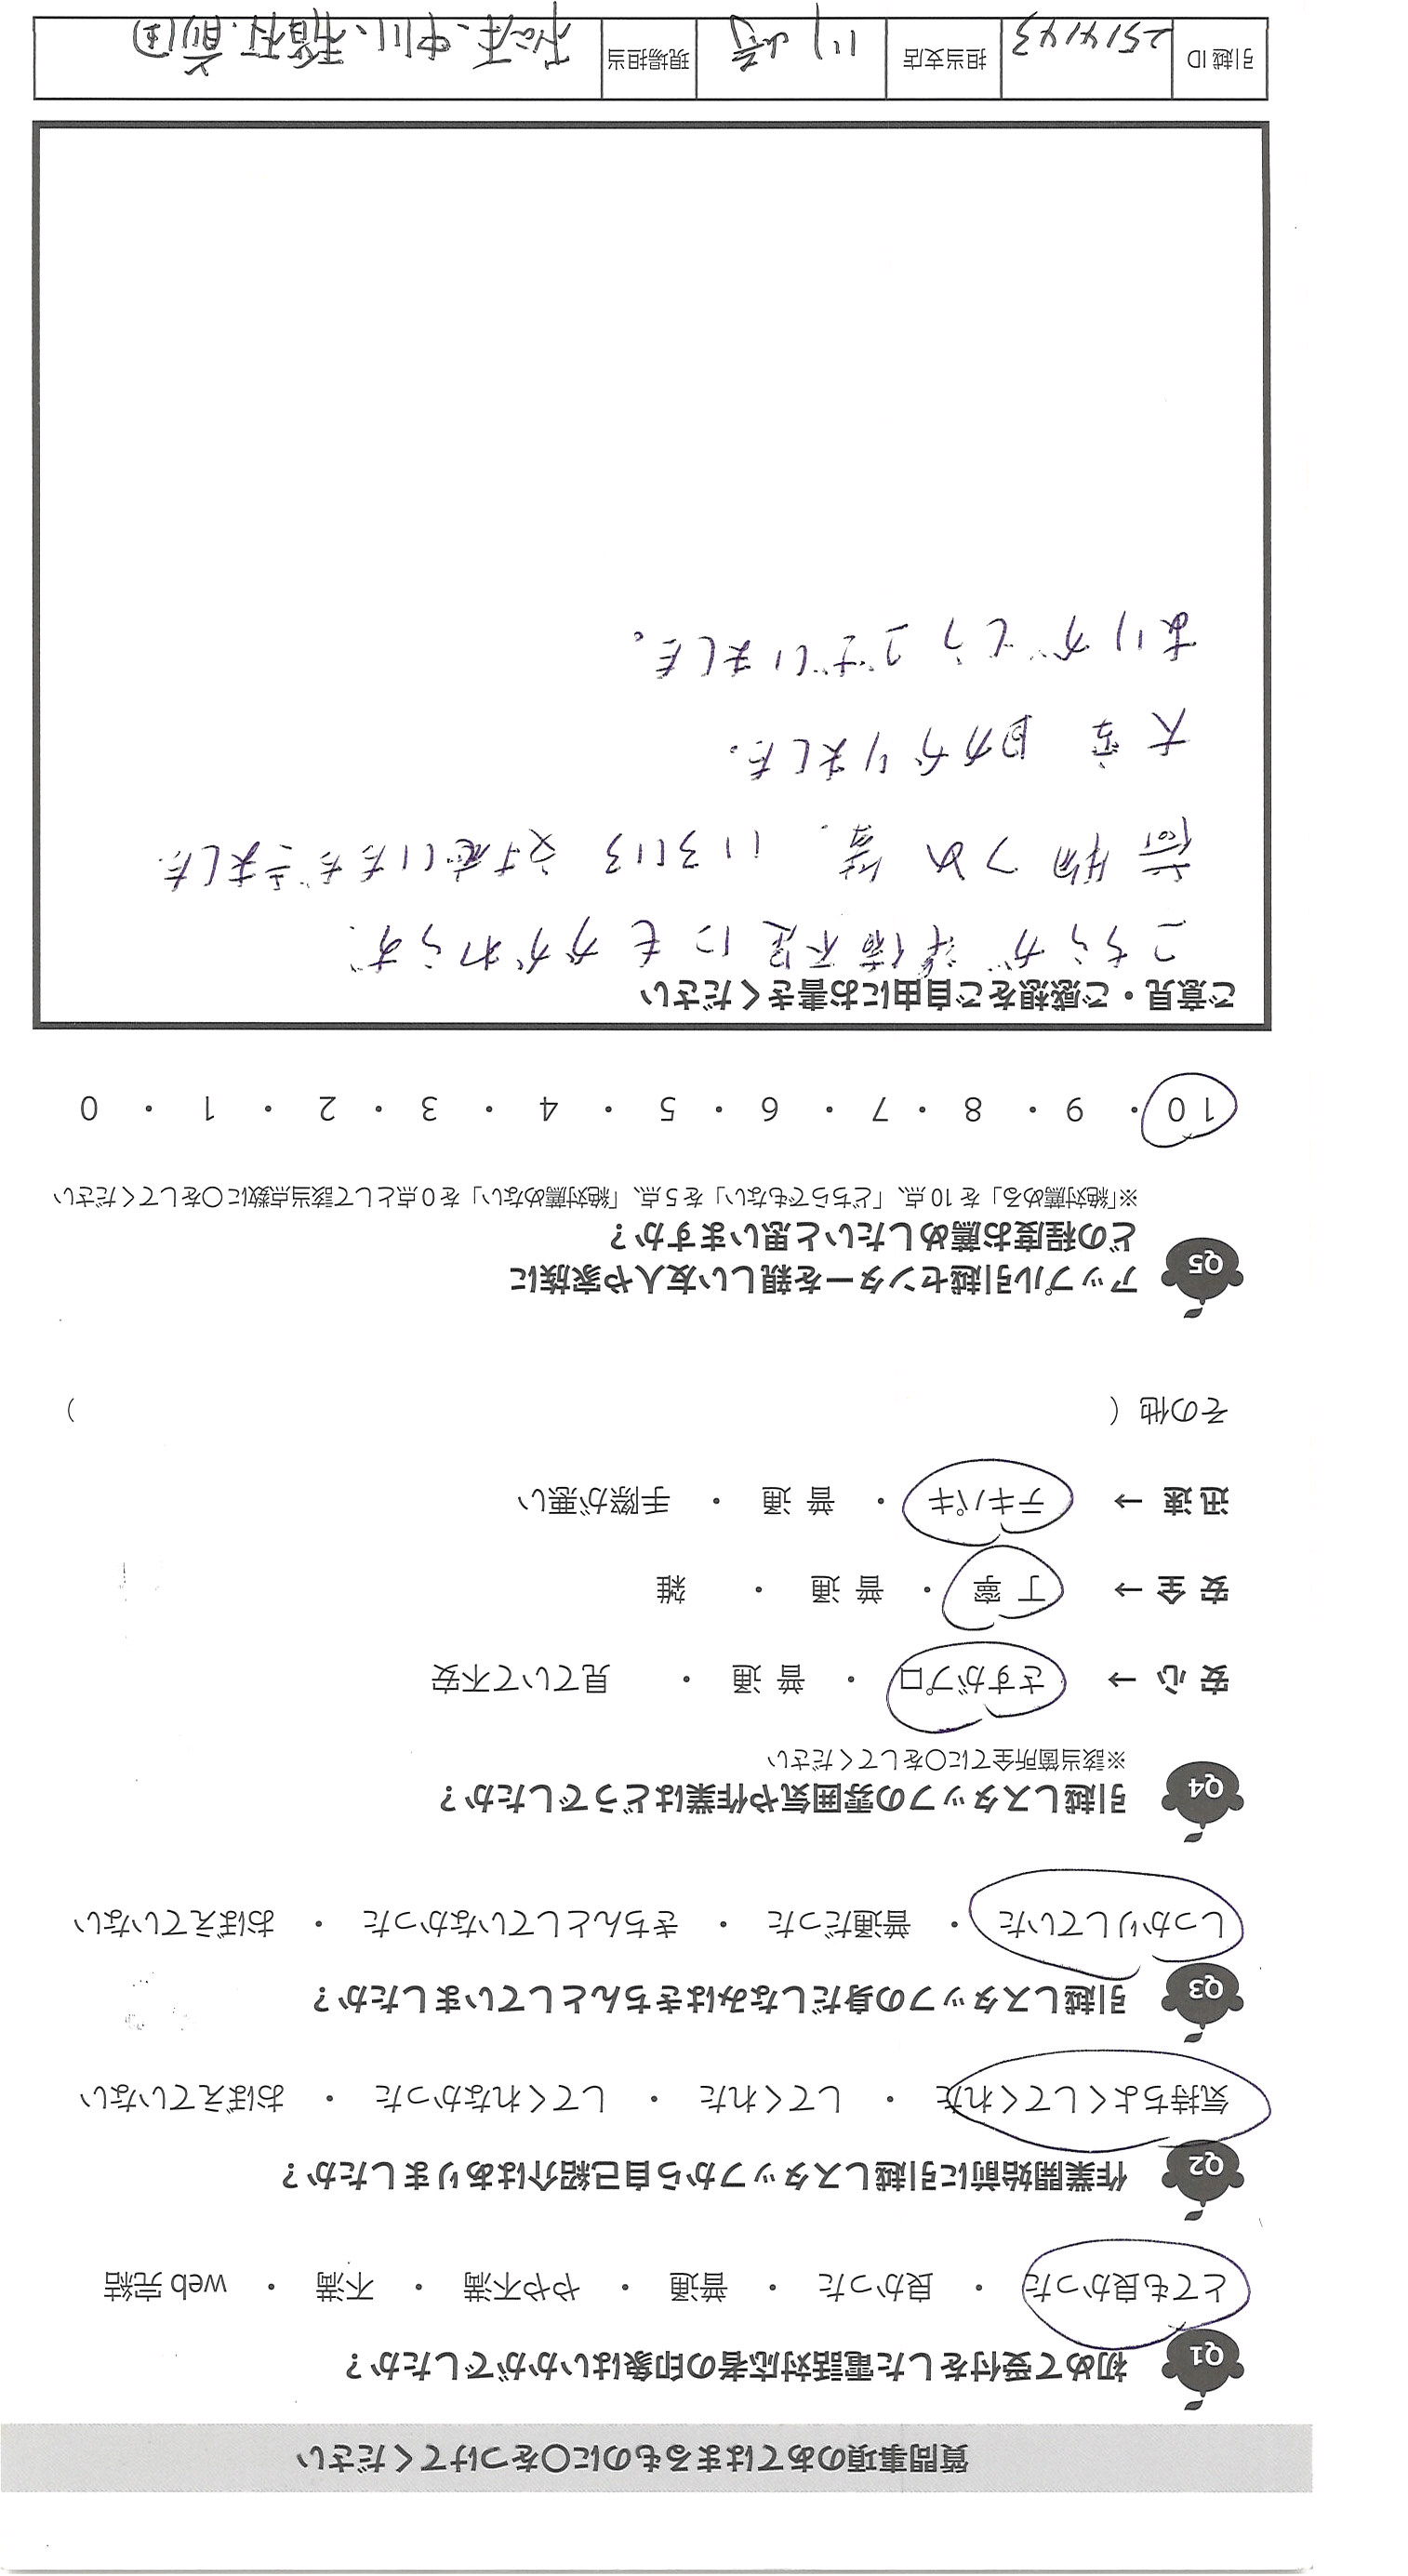 質問事項のあてはまるものに○をつけてください
Q1 初めて受付をした電話対応者の印象はいかがでしたか？
とても良かった ・ 良かった ・ 普通 ・ やや不満 ・ 不満 ・ web 完結
Q2 作業開始前に引越しスタッフから自己紹介はありましたか？
気持ちよくしてくれた ・ してくれた ・ してくれなかった ・ おぼえていない
Q3 引越しスタッフの身だしなみはきちんとしていましたか？
しっかりしていた ・ 普通だった ・ きちんとしていなかった ・ おぼえていない
Q4 引越しスタッフの雰囲気や作業はどうでしたか？
※該当箇所全てに○をしてください
安 心 → さすがプロ ・ 普 通 ・ 見ていて不安
安 全 → 丁 寧 ・ 普 通 ・ 雑
迅 速 → テキパキ ・ 普 通 ・ 手際が悪い
その他（ ）
Q5 アップル引越センターを親しい友人や家族に
どの程度お薦めしたいと思いますか？
※「絶対薦める」を 10 点、「どちらでもない」を 5 点、「絶対薦めない」を 0 点として該当点数に○をしてください
10 ・ 9 ・ 8 ・ 7 ・ 6 ・ 5 ・ 4 ・ 3 ・ 2 ・ 1 ・ 0
ご意見・ご感想をご自由にお書きください
こちらが準備不足にもかかわらず、
荷物つめ等、いろいろ対応いただきました
大変 助かりました。
ありがとうございました。
引越 ID 2514143 担当支店 川崎 現場担当 松本、中川、稲村、前田